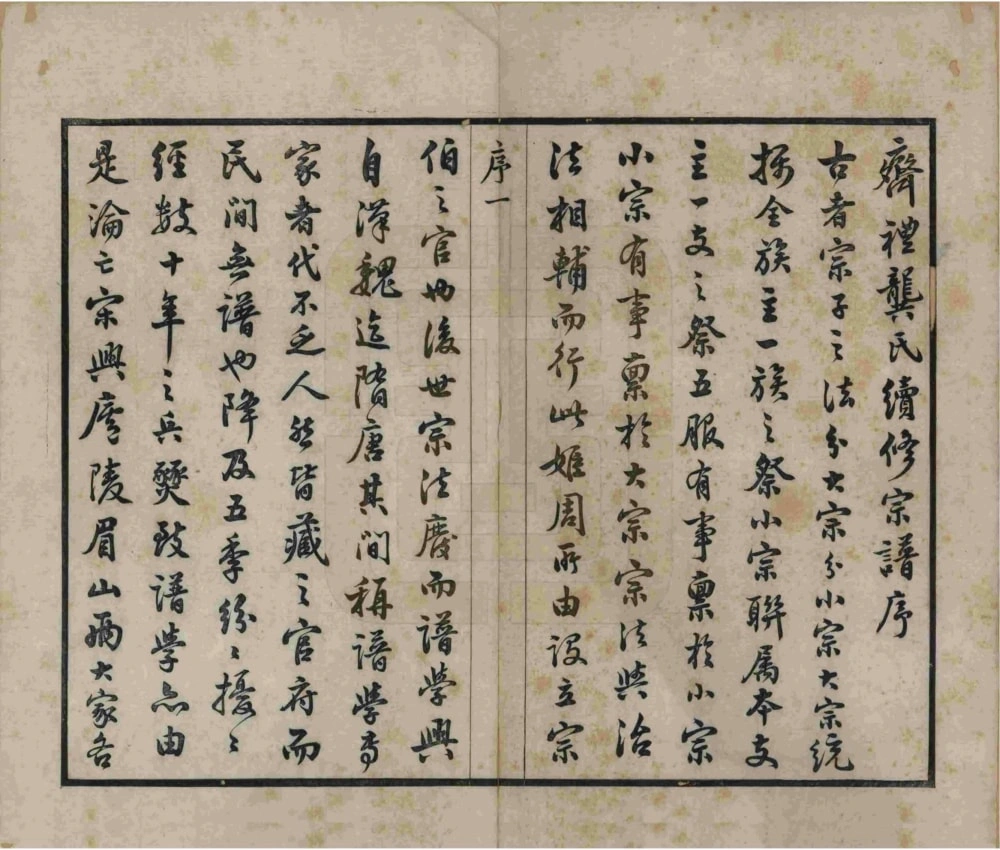 齊禮龔氏續修宗譜序
古者宗子之法分大宗分小宗大宗統
攝全族主一族之祭小宗聯属本支
主一支之祭五服有事稟於小宗
小宗有事稟於大宗宗法與治
法相輔而行此姬周所由設立宗
序一
伯之官也後世宗法廢而譜學興
自漢魏迄隋唐其間稱譜學專
家者代不乏人然皆藏之官府而
民間無譜也降及五季紛〻擾〻
經數十年之兵燹致譜學亦由
是淪亡宋興廬陵眉山兩大家各